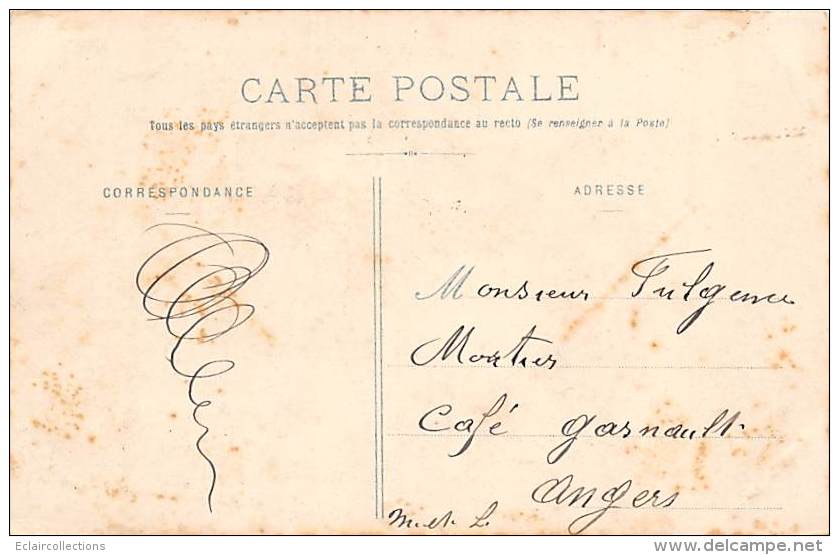 CARTE POSTALE
Tous les pays étrangers n'acceptent pas la correspondance au recto (Se renseigner à la Poste)
CORRESPONDANCE
ADRESSE
Monsieur Fulgence
Mortier
Café Garnault
Angers
M. et L.
Eclaircollections
www.delcampe.net